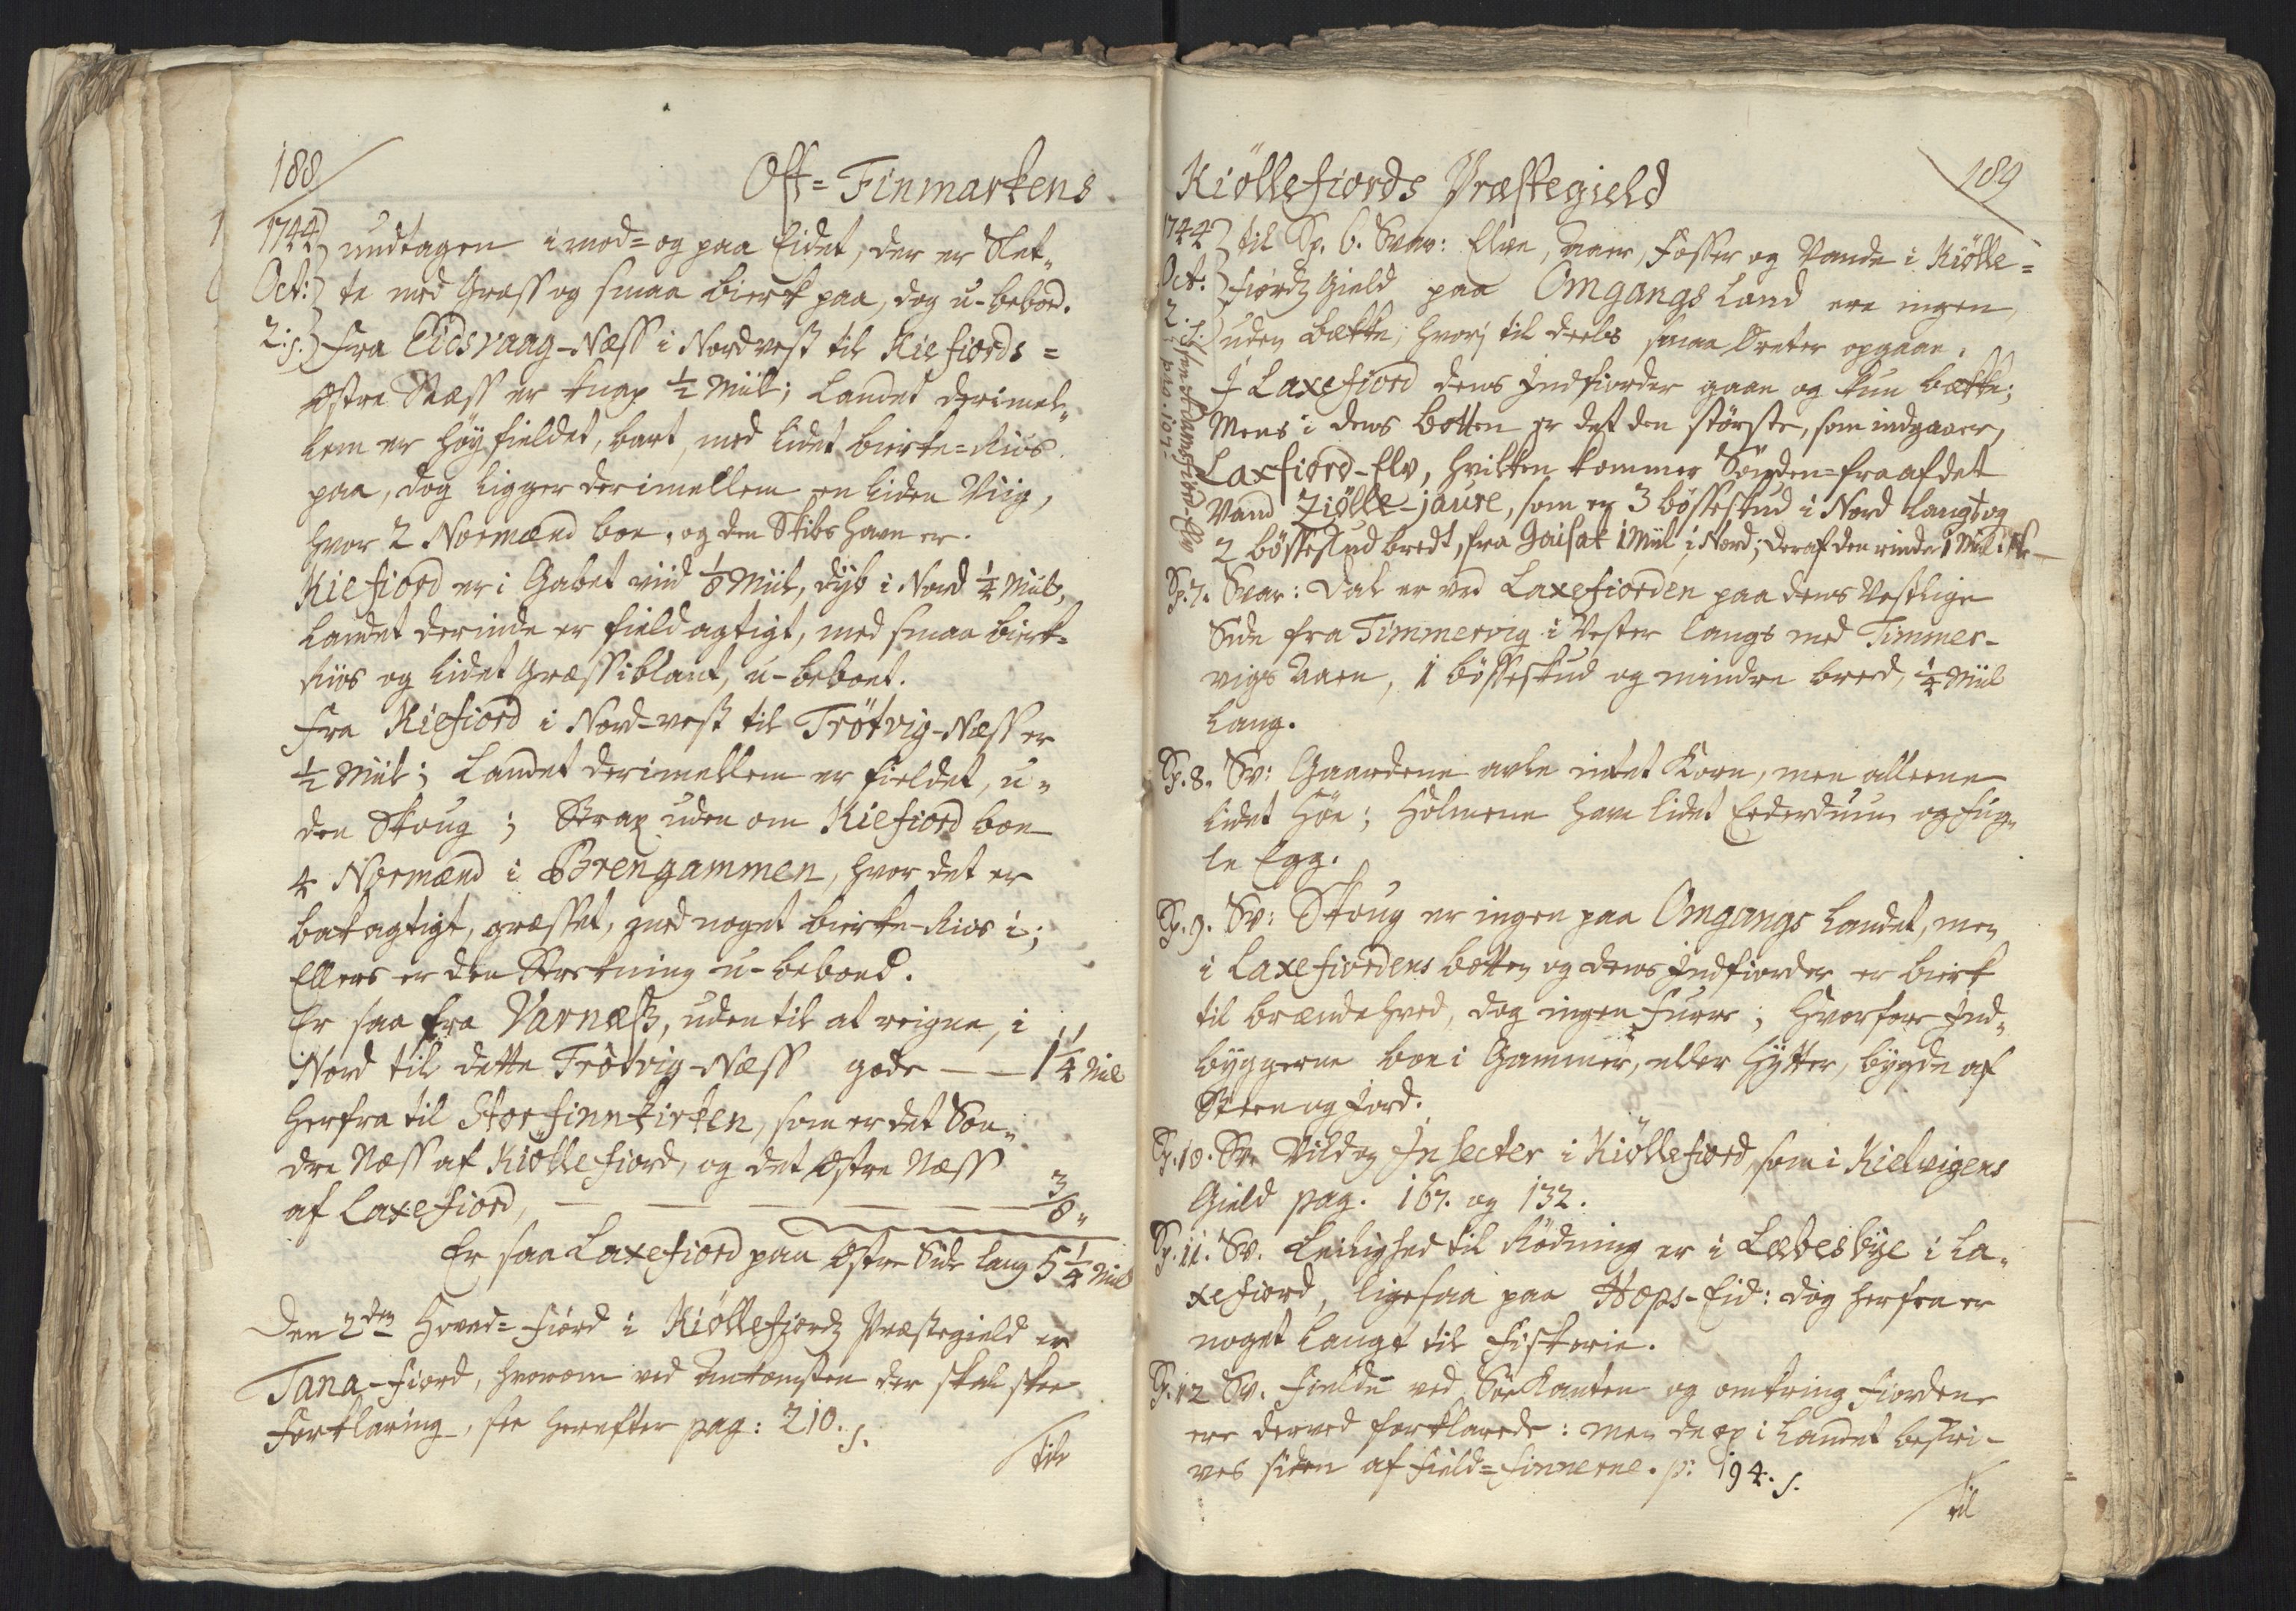 188
Ost=Finmarkens
1744 undtagen imod= og paa Eidet, der er Slet„
Oct: te med Græss og smaa Birk paa, dog u-beboed.
2:s. Fra Eidsvaag-Næss i Nordvest til Kiefiords=
østre Næss er knap ½ Miil; Landet derimel„
lem er høy fieldet, bart, med lidet birke=Riis
paa, dog ligger derimellem en liden Viig,
hvor 2 Normænd boe, og den Skibs Havn er.
Kiefiord er i Gabet viid ⅛ Miil, dyb i Nord ¼ Miil,
Landet derinde er fieldagtigt, med smaa birk=
Riis og lidet Græss iblant, u-beboet.
Fra Kiefiord i Nord-vest til Trötvig-Næss er
½ Miil; Landet derimellem er fieldet, u„
den Skoug; Strax uden om Kiefiord boe
4 Normænd i Brengammen, hvor det er
bakagtigt, græsset, med noget birke-Riis i;
Ellers er den Strekning u-beboed.
Er saa fra Varnæss, uden til at reigne, i
Nord til dette Trötvig-Næss gode — — 1¼ Miil
Herfra til Storfinnkirken, som er det Søn„
dre Næss af Kiöllefiord, og det østre Næss
af Laxefiord, — — — — — 3/8„
Er saa Laxefiord paa østre Side lang 5¼ Miil
Den 2den Hoved=Fiord i Kiöllefiords Præstegield er
Tana-Fiord, hvorom ved Ankomsten der skal skee
Forklaring, see herefter pag: 210. s.
til
Kiöllefiords Præstegield
189
1744 til Sp. 6. Svar: Elve, Aaer, Fosser og Vande i Kiölle=
Oct: fiords Gield paa Omgangs Land ere ingen,
2:s. uden bække, hvori til deels smaa Ørreter opgaae.
I Laxefiord dens Indfiorder gaae og kun bække;
Mens i dens botten er det den störste, som indgaaer,
Laxfiord-Elv, hvilken kommer Sønden=fra af det
Vand Ziölle-jaure, som er 3 bösseskud i Nord langt og
2 bösseskud bredt, fra Gaisak 1 Miil i Nord; deraf den rinder 1 Miil.
see Adamsfiord-Elv pag. 197.
Sp. 7. Svar: Dal er ved Laxefiorden paa dens Vestlige
Side fra Timmervig i Vester langs med Timmer-
vigs Aaen, 1 bösseskud og mindre bred, ¼ Miil
lang.
Sp. 8. Sv: Gaardene avle intet Korn, men alleene
lidet Høe; Holmerne have lidet Ederduun og Fug„
le Egg.
Sp. 9. Sv: Skoug er ingen paa Omgangs Landet, men
i Laxefiordens botten og dens Indfiorder er birk
til brændehved, dog ingen Furre; Hvorfore Ind„
byggerne boe i Gammer, eller Hytter, bygde af
Steen og Jord.
Sp. 10. Sv. Vild og Insecter i Kiöllefiord, som i Kielvigens
Gield pag. 167. og 132.
Sp. 11. Sv. Leilighed til Rödning er i Lebesbye i La„
xefiord, ligesaa paa Hops-Eid: dog herfra er
noget langt til Fiskerie.
Sp. 12 Sv. Fielde ved Søe Kanten og omkring Fiordene
ere derved forklarede: men de op i Landet beskri-
ves siden af Field=Finnerne. p: 194. s.
til